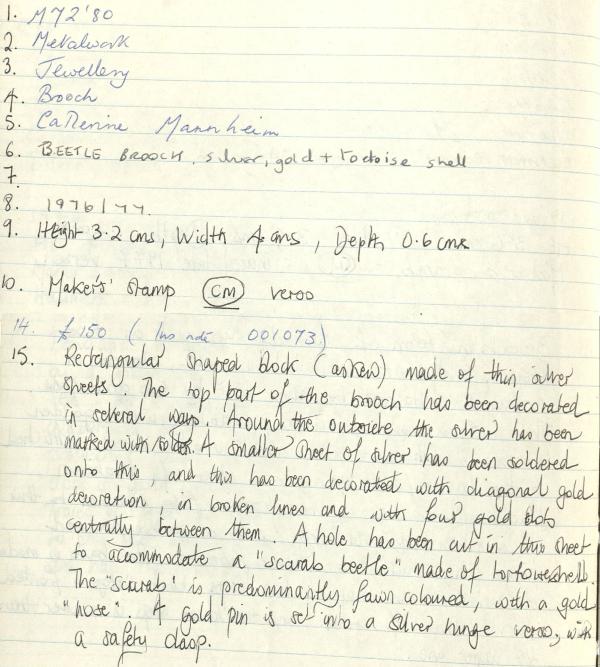 1. M72'80
2. Metalwork
3. Jewellery
4. Brooch
5. Catherine Mannheim
6. BEETLE BROOCH, silver, gold + tortoise shell
7.
8. 1976/77.
9. Height 3.2 cms, Width 4 cms, Depth 0.6 cms
10. Maker's stamp CM verso
14. £150 (Ins note 001073)
15. Rectangular shaped block (askew) made of thin silver
sheets. The top part of the brooch has been decorated
in several ways. Around the outside the silver has been
marked with solder. A smaller sheet of silver has been soldered
onto this, and this has been decorated with diagonal gold
decoration, in broken lines and with four gold dots
centrally between them. A hole has been cut in this sheet
to accommodate a "scarab beetle" made of tortoiseshell.
The "scarab" is predominantly fawn coloured, with a gold
"nose". A gold pin is set into a silver hinge verso, with
a safety clasp.